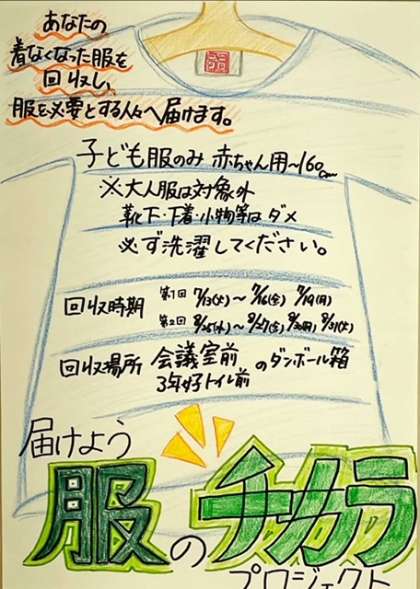 あなたの
着なくなった服を
回収し、
服を必要とする人々へ届けます。
子ども服のみ 赤ちゃん用～160cm
※大人服は対象外
靴下・下着・小物等はダメ
必ず洗濯してください。
回収時期 第1回 7/13(火)～7/16(金) 7/19(月)
第2回 8/25(水)～8/27(金) 8/30(月) 8/31(火)
回収場所 会議室前 のダンボール箱
3年女子トイレ前
届けよう
服のチカラ
プロジェクト